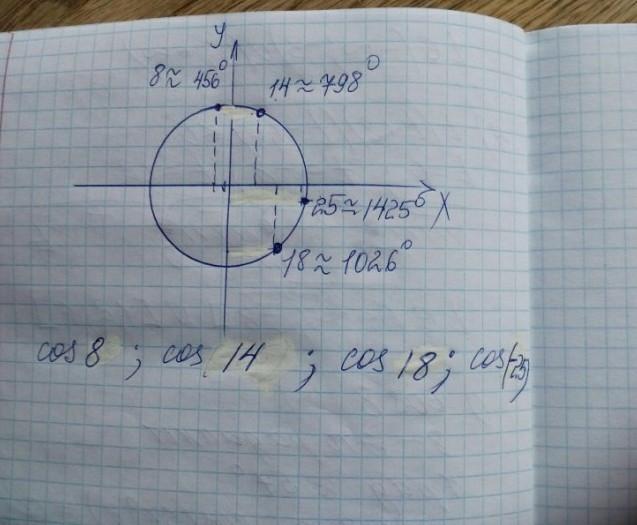 y
8 ≈ 456°
14 ≈ 798°
25 ≈ 1425° X
18 ≈ 1026°
cos 8 ; cos 14 ; cos 18 ; cos(-25)